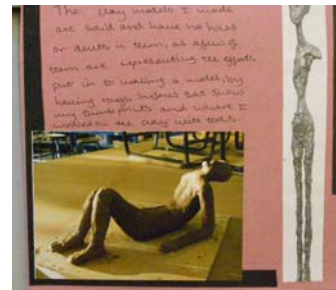 The clay models I made
are solid and have no holes
or dents in them, as a few of
them are representing the efforts
put in to making a model, by
having rough surfaces that shows
my thumb prints and where I
worked on the clay with tools.